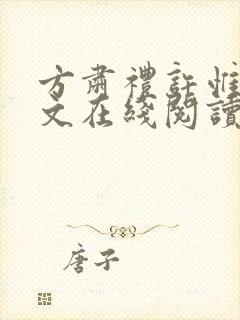 方肅禮許惟
文在綫閱讀
唐子